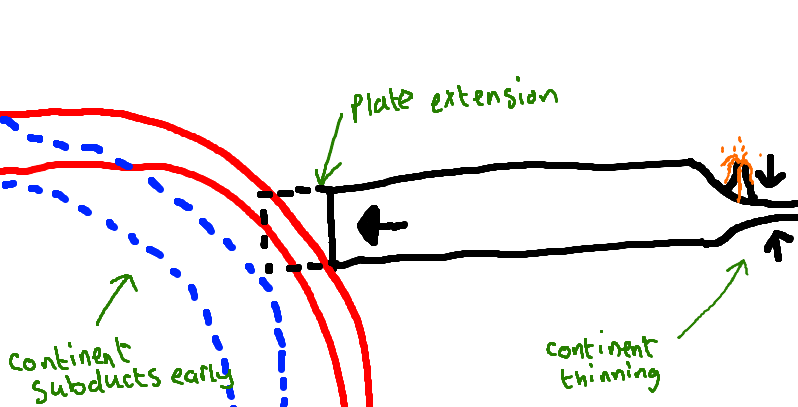 Plate extension
continent
subducts early
continent
thinning